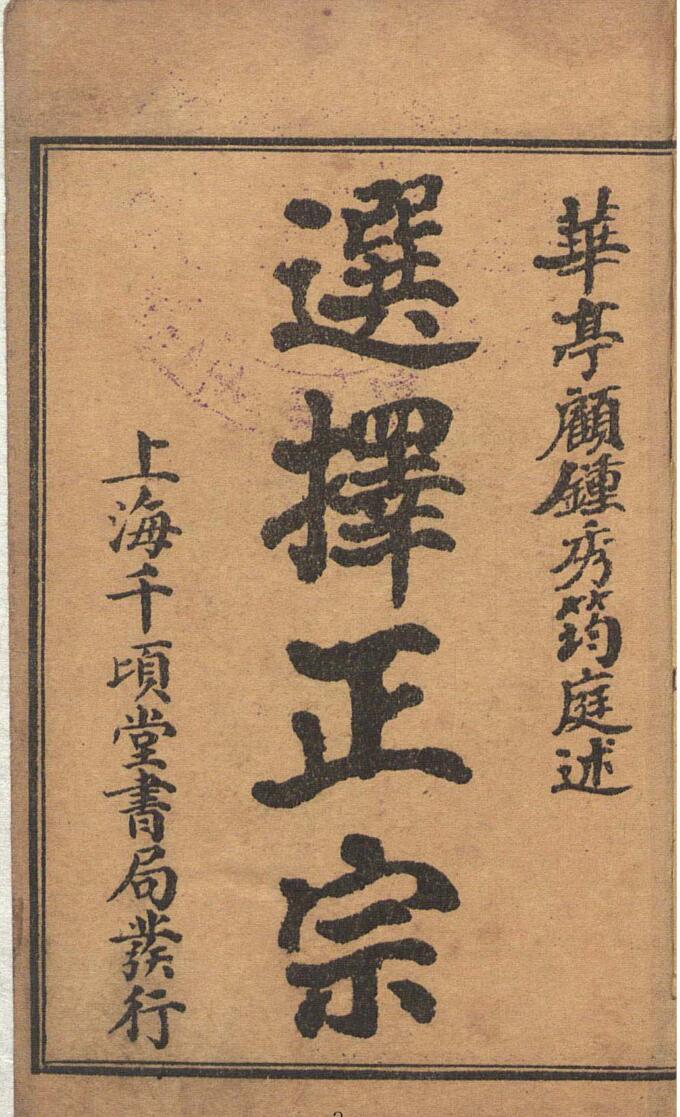 華亭顧鍾秀筠庭述
選擇正宗
上海千頃堂書局發行